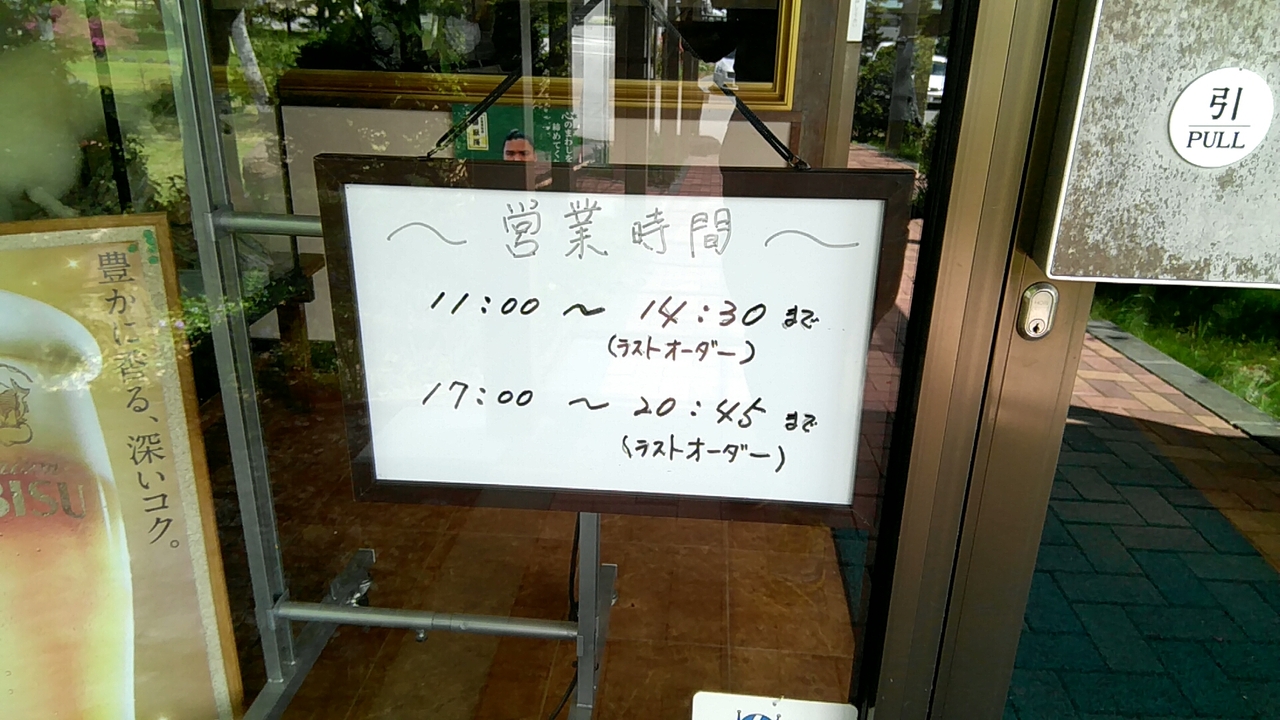 〜 営業時間 〜
11:00 〜 14:30 まで
(ラストオーダー)
17:00 〜 20:45 まで
(ラストオーダー)
引
PULL
豊かに香る、深いコク。
BISU